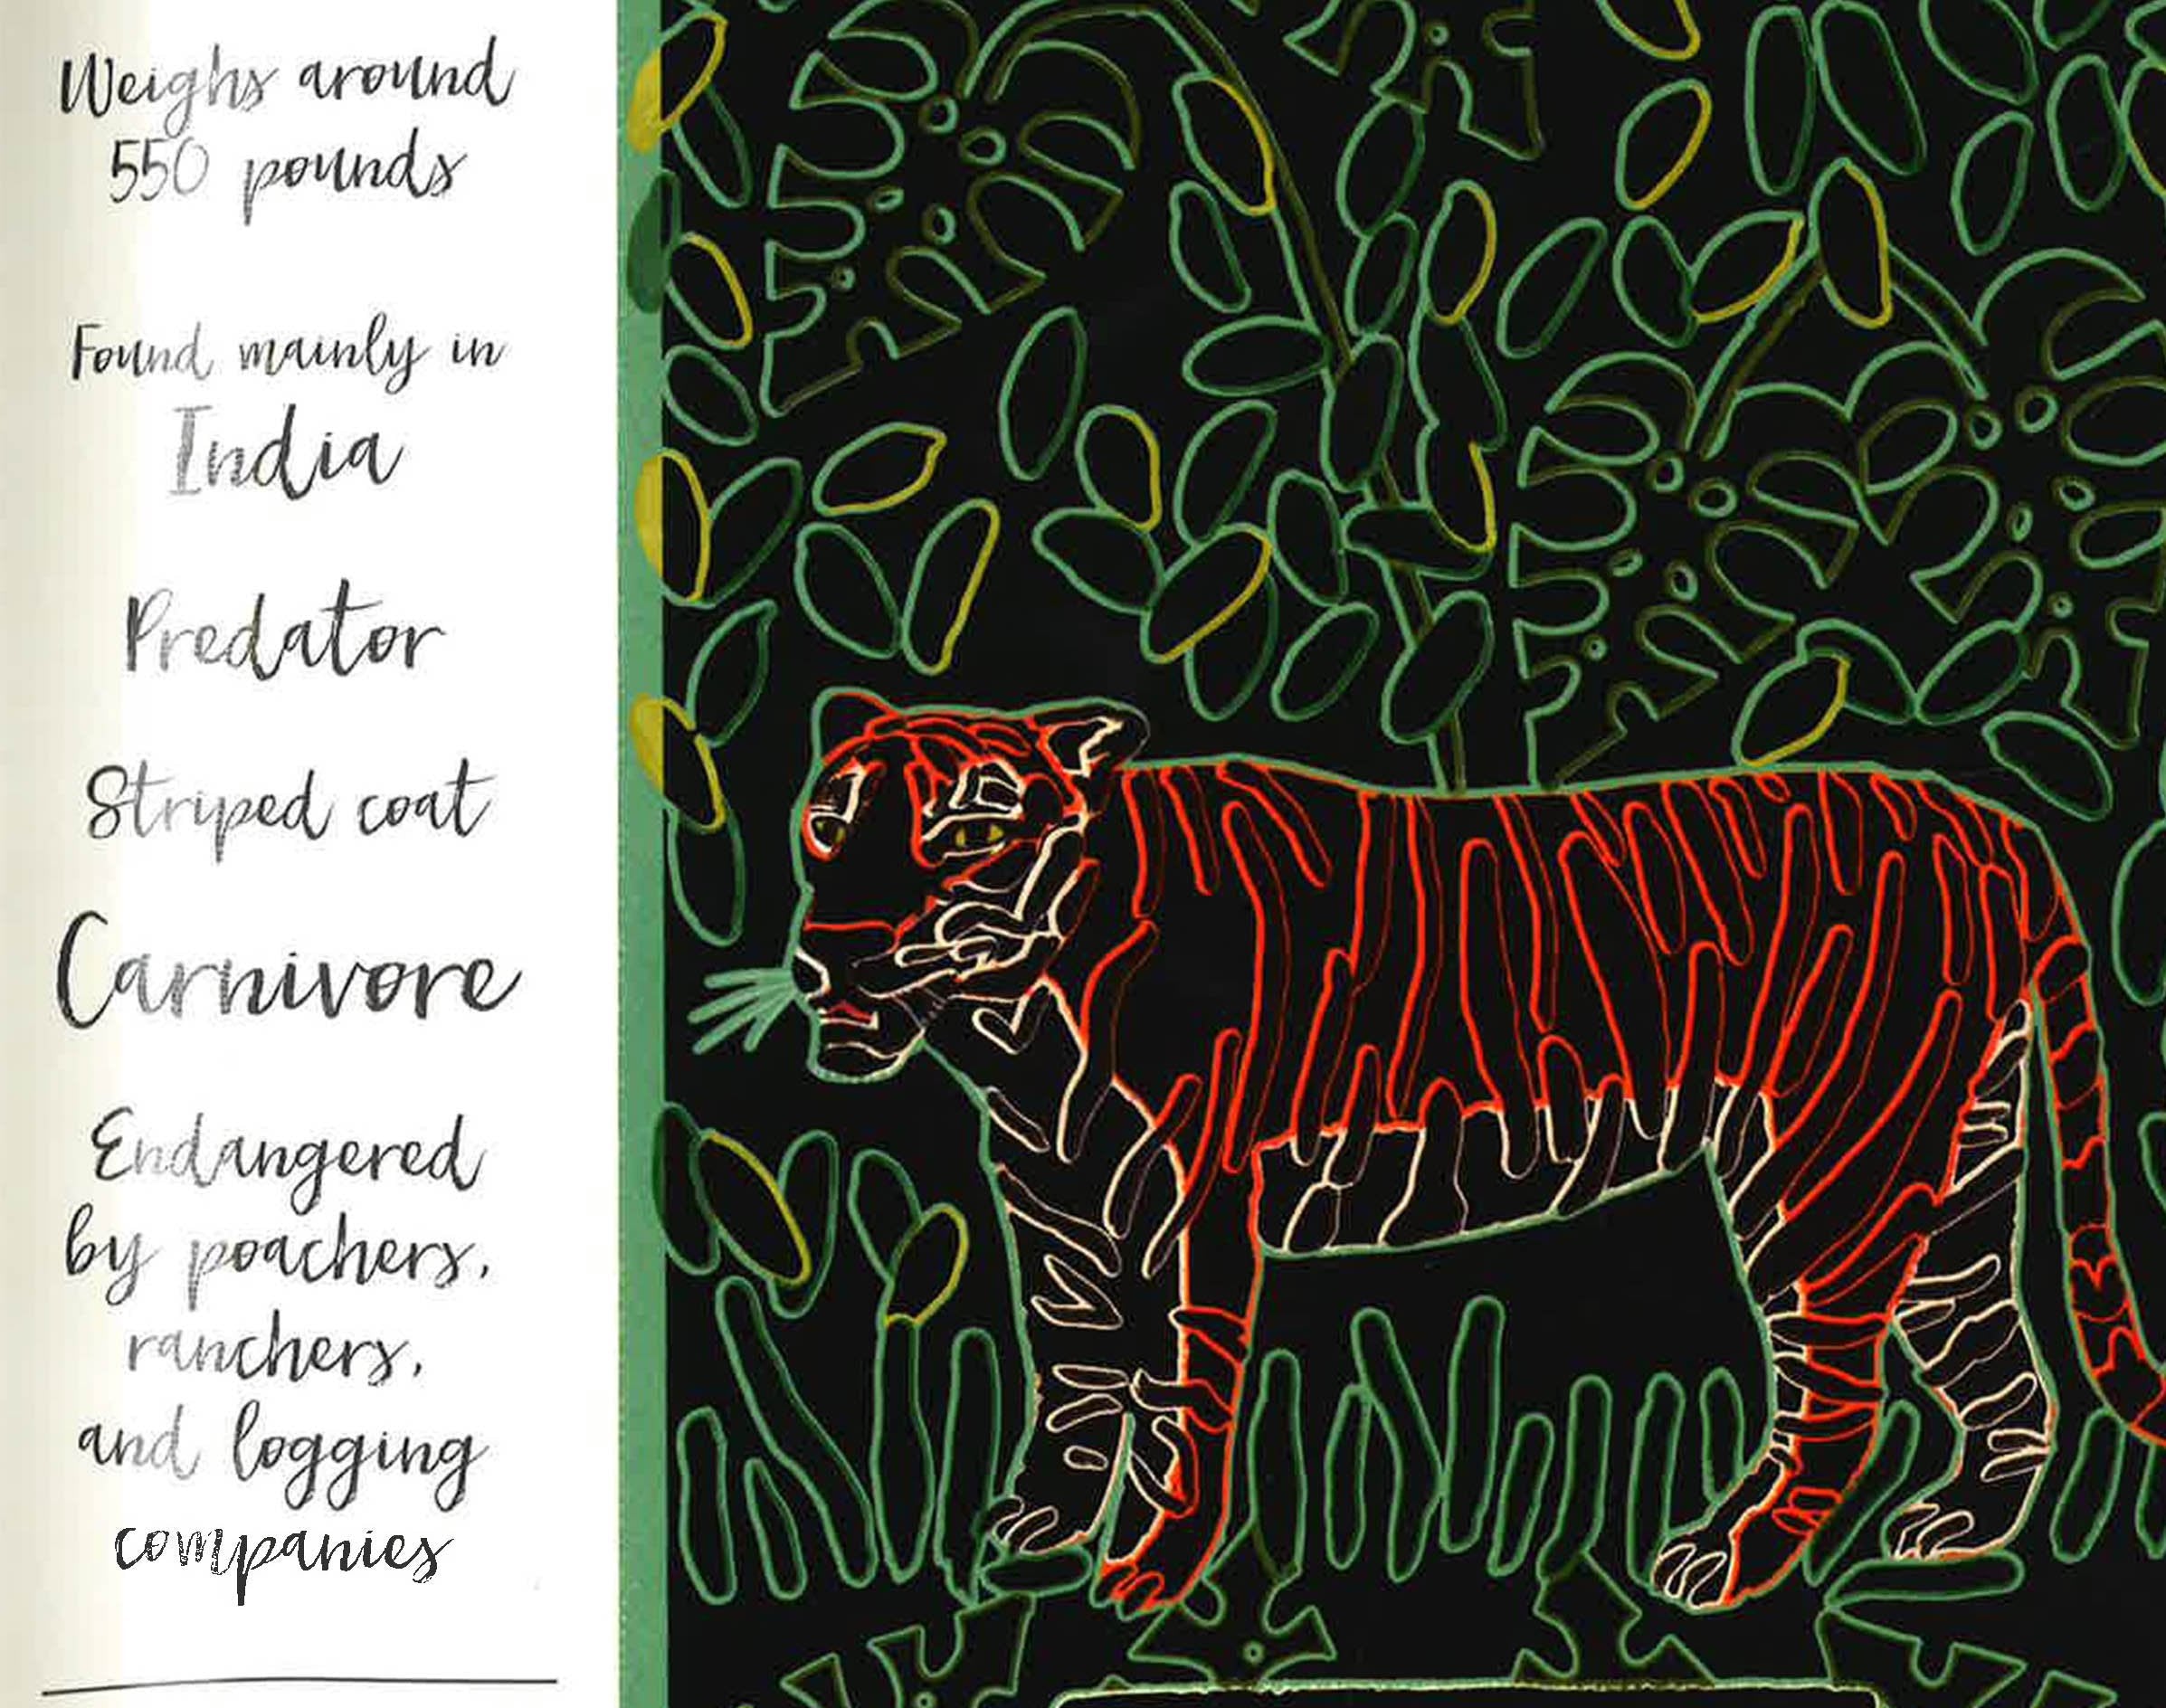 Weighs around
550 pounds
Found mainly in
India
Predator
Striped coat
Carnivore
Endangered
by poachers,
ranchers,
and logging
companies